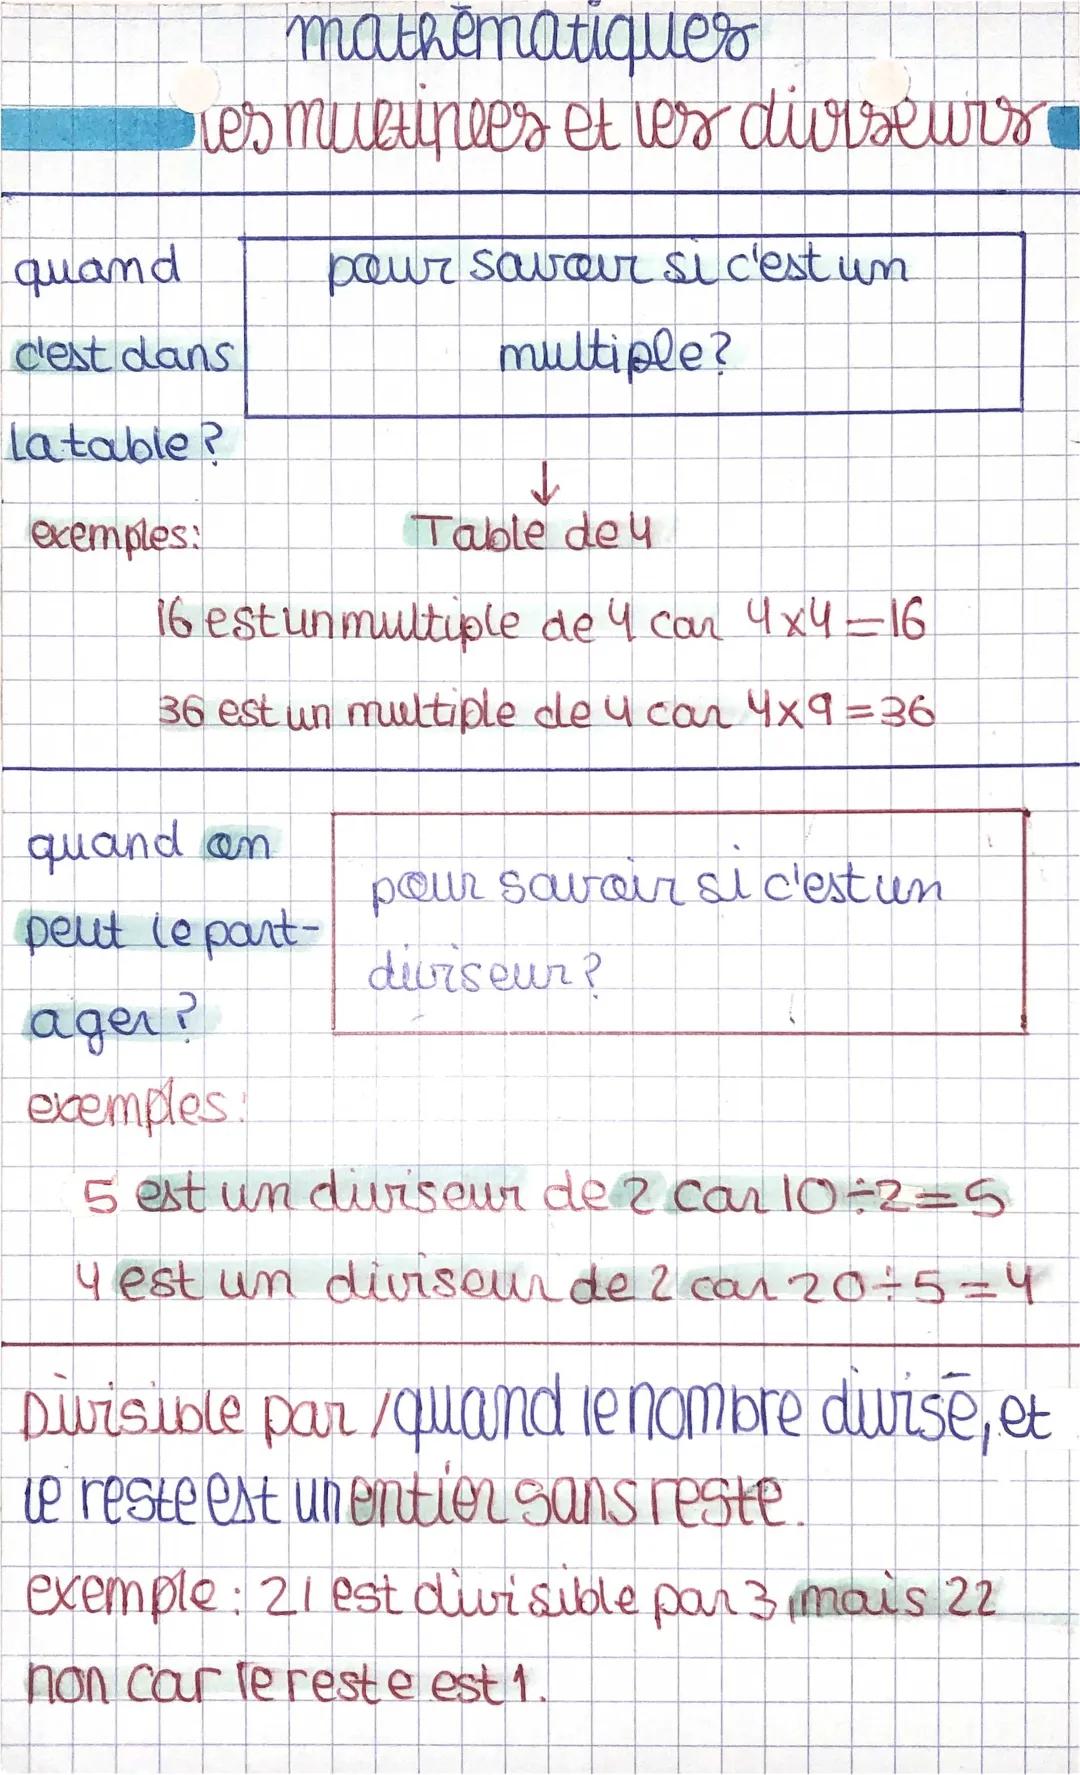 mathēmatiques
les multiples et les diviseurs
quand
pour savoir si c'est un
c'est dans
multiple?
la table?
↓
exemples:
Table de 4
16 est un multiple de 4 car 4x4=16
36 est un multiple de 4 car 4x9=36
quand on
pour savoir si c'est un
peut le part-
diviseur?
ager?
exemples:
5 est un diviseur de 2 car 10÷2=5
4 est un diviseur de 2 car 20÷5=4
Divisible par / quand le nombre divisē, et
le reste est un entier sans reste.
exemple: 21 est divisible par 3, mais 22
non car le reste est 1.